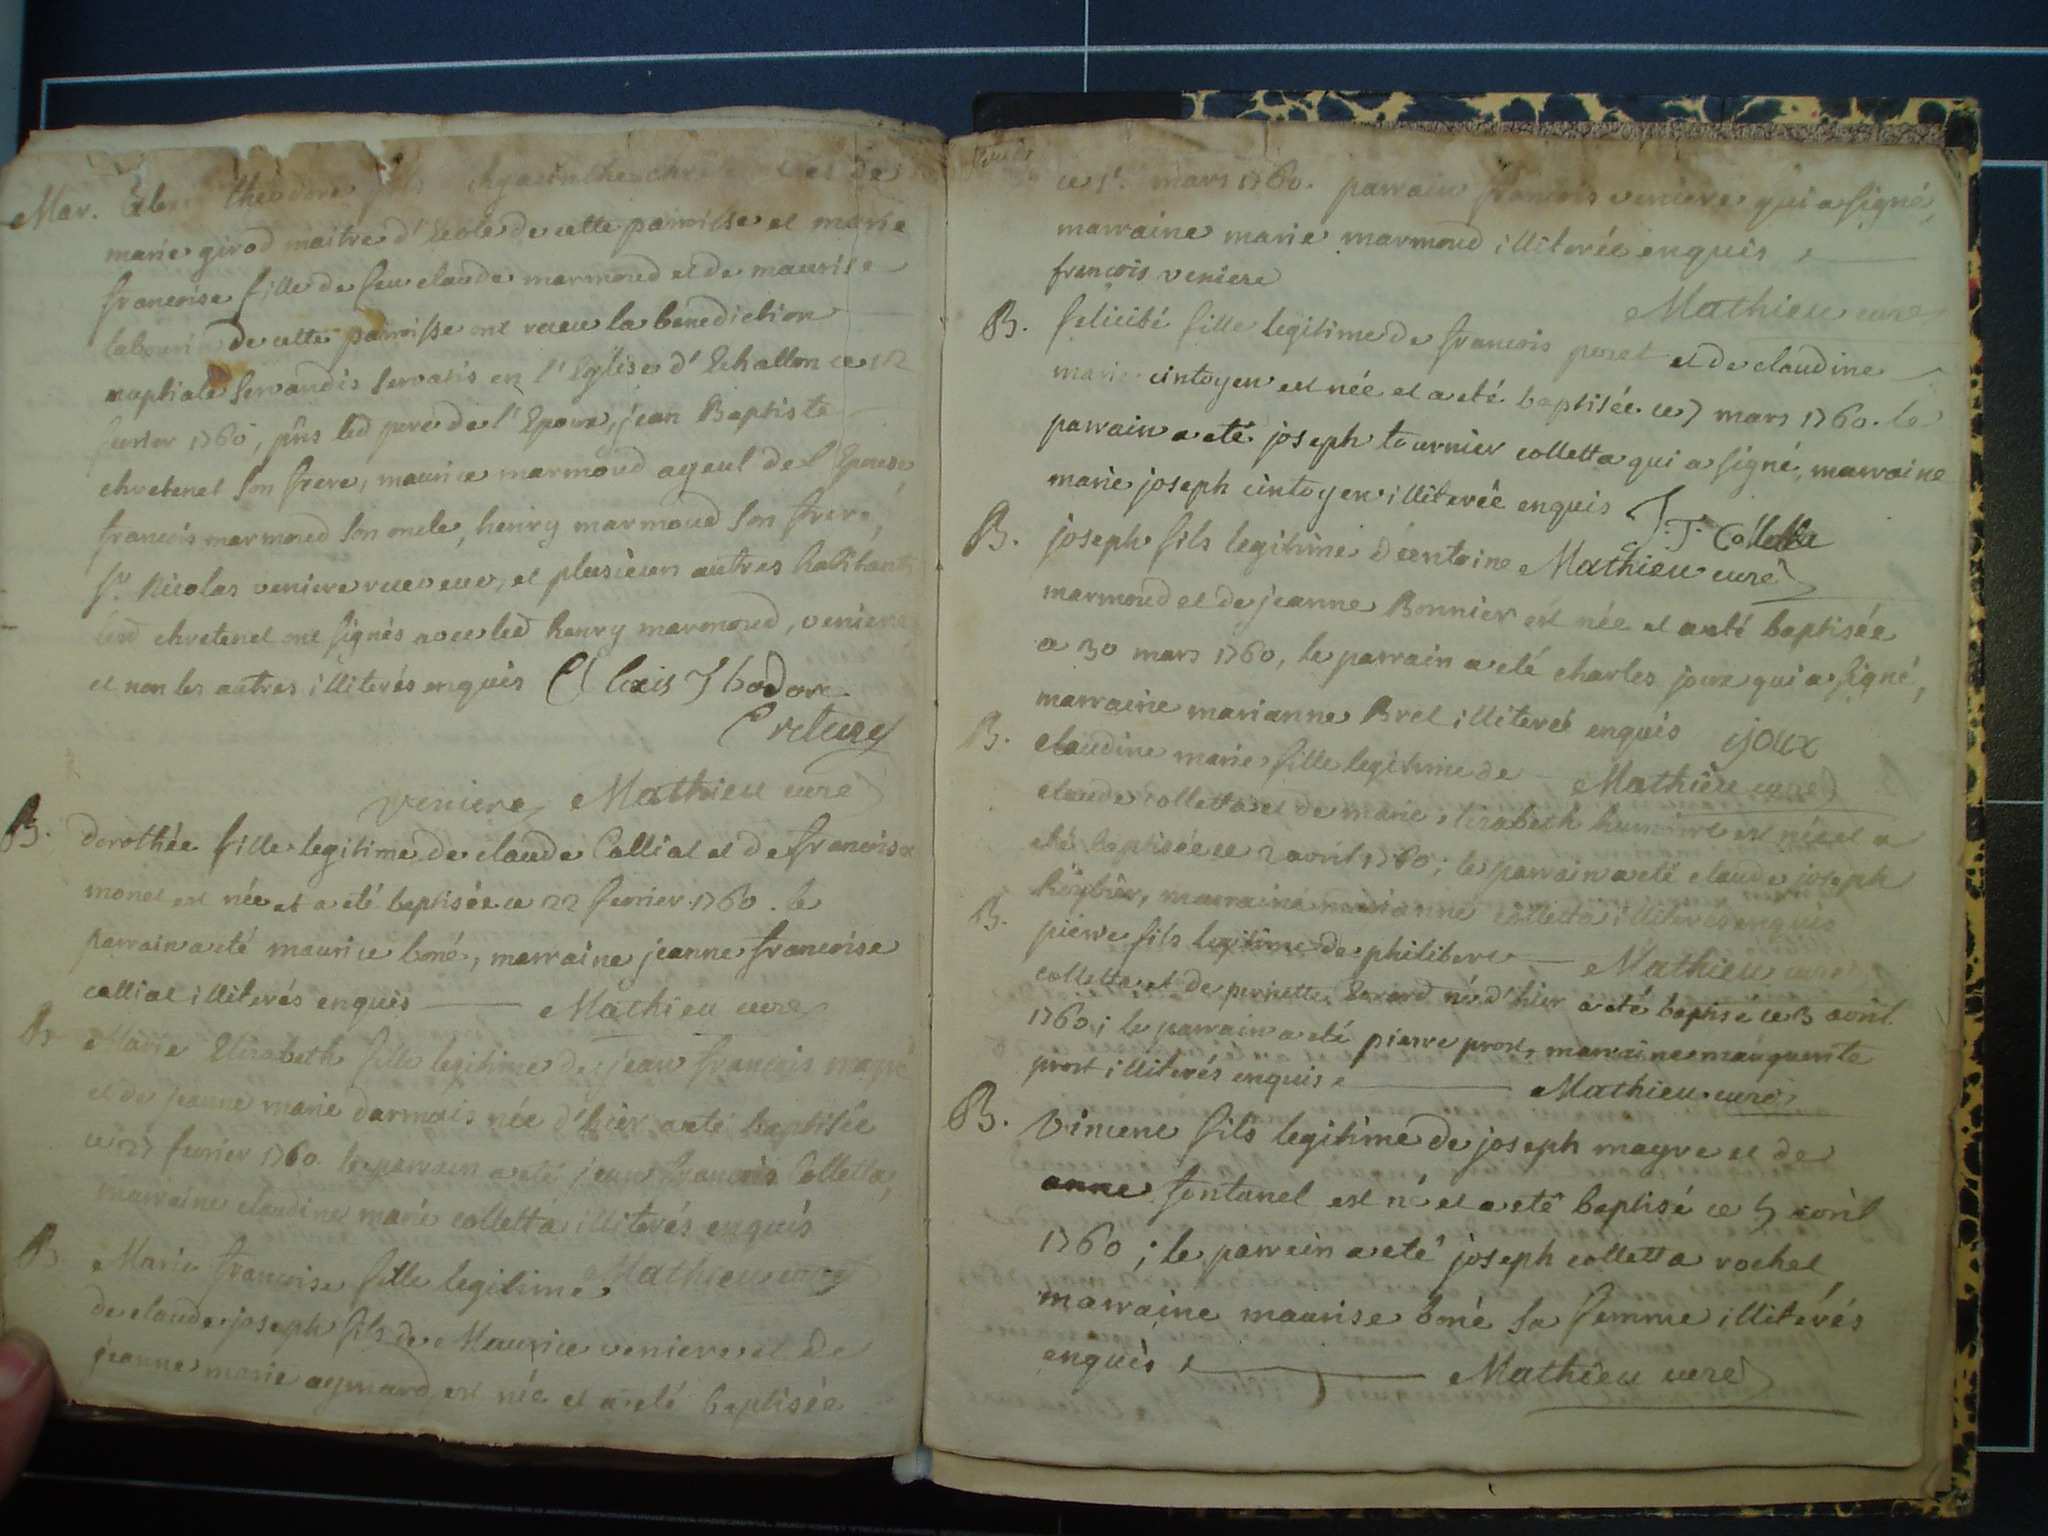 Mar. theodore fils hyacinthe de
marie girod maitre d'ecole de cette paroisse et marie
francoise fille de feu claude marmoud et de maurise
labouri de cette paroisse ont receu la benediction
nuptiale servandis servatis en l'Eglise d'Echallon ce 12
fevrier 1760, pñs led pere de l'Epoux, jean Baptiste
chretenet son frere, maurice marmoud ayeul de l'Epouse
francois marmoud son oncle, henry marmoud son frere,
sr. Nicolas veniere receveur, et plusieurs autres habitants
chretenet ont signés avec led henry marmoud, veniere
et non les autres illiterés enquis Alexis Thodore
veniere Mathieu curé
B. dorothée fille legitime de claude Calliat et de francoise
monet est née et a eté baptisée ce 22 fevrier 1760. le
parrain a eté maurice boné, marraine jeanne francoise
calliat illiterés enquis Mathieu curé
B. Marie Elizabeth fille legitime de jean francois mayre
et de jeanne marie darmais née d'hier a eté baptisée
ce 27 fevrier 1760. le parrain a eté jean francois Colletta,
marraine claudine marie colletta illiterés enquis
Mathieu curé
B. Marie francoise fille legitime
de claude joseph fils de Maurice veniere et de
jeanne marie aymard est née et a eté baptisée
ce 1r. mars 1760. parrain francois veniere qui a signé,
marraine marie marmoud illiterée enquis
francois veniere
Mathieu curé
B. felicité fille legitime de francois poret et de claudine
marie cintoyen est née et a eté baptisée ce 7 mars 1760. le
parrain a eté joseph tournier colletta qui a signé, marraine
marie joseph cintoyen illiterée enquis J.T. Colletta
B. joseph fils legitime d'entoine Mathieu curé
marmoud et de jeanne Bonnier est née et a eté baptisée
a 30 mars 1760, le parrain a eté charles joux qui a signé,
marraine marianne Bret illiterée enquis joux
B. claudine marie fille legitime de Mathieu curé
claude colletta et de marie elizabeth humbert est née et a
eté baptisée ce 2 avril 1760; le parrain a eté claude joseph
marraine marianne colletta illiterés enquis
B. pierre fils legitime de philibert Mathieu curé
colletta et de pernette Evrard né d'hier a eté baptisé ce 3 avril
1760; le parrain a eté pierre prost, marraine marguerite
prost illiterés enquis Mathieu curé
B. Vincent fils legitime de joseph mayre et de
anne fontanel est né et a eté baptisé ce 5 avril
1760; le parrain a eté joseph colletta rochet
marraine maurise boné sa femme illiterés
enquis Mathieu curé